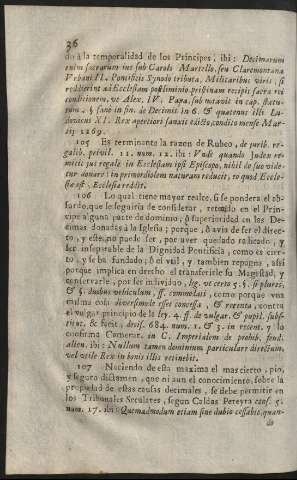 36
do à la temporalidad de los Principes, ibi: Decimarum
enim sacrarum aut sub Carolo Martello, seu Claremontana
Urbani II. Pontificis Synodo tributa, Militaribus viris, si
redierint ad Ecclesiam postliminio pristinam recipit sacra rei
conditionem, ut Alex. IV. Papa, sub notavit in cap. statu-
tum. § sanè in fin. de Decimis in 6. & quatenus illi Lu-
dovicus XI. Rex apertiori sanxit edicto, condito mense Mar-
tij 1269.
105 Es terminante la razon de Rubeo, de purb. re-
galib. privil. 11. num. 12. ibi: Unde quando Judex re-
mittit jus regale in Ecclesiam ipsi Episcopo, nihil de suo vide-
tur donare: in primordialem naturam reducit, &
quod Eccle-
siæ est, Ecclesiæ reddit.
106 Lo qual tiene mayor realce, si se pondera el ab-
surdo, que se seguiria de considerar, retenido en el Princi-
pe alguna parte de dominio, ò superioridad en los De-
cimas donadas à la Iglesia; porque, ò avia de ser el direc-
to, y este, no puede ser, por aver quedado radicado, y
ser inseparable de la Dignidad Pontificia, como es cier-
to, y se ha fundado; ò el vtil, y tambien repugna, assi
porque implica en derecho el transferirle su Magestad, y
conservarle, por ser individuo, leg. ut certo 5. §. si plures,
& §. duobus vehiculum, ff. commodati, como porque vna
misma cosa diversimode esset concessa, & retenta, contra
el vulgar principio de la ley. 4. ff. de vulgar. & pupil. subs-
titut. & fuere, decis. 684. num. 1. & 3. in recent. y lo
confirma Comente. in C. Imperialem de prohib. feud.
alien. ibi: Nullum tamen dominium particulare directum,
vel utile Rex in bonis illis retinebit.
107 Naciendo de esta maxima el mas cierto, pio,
y seguro dictamen, que ni aun el conocimiento, sobre la
propiedad de estas causas decimales, se debe permitir en
los Tribunales Seculares, segun Caldas Pereyra cons. 5.
num. 17. ibi: Quemadmodum etiam sine dubio cessabit, quan-
do